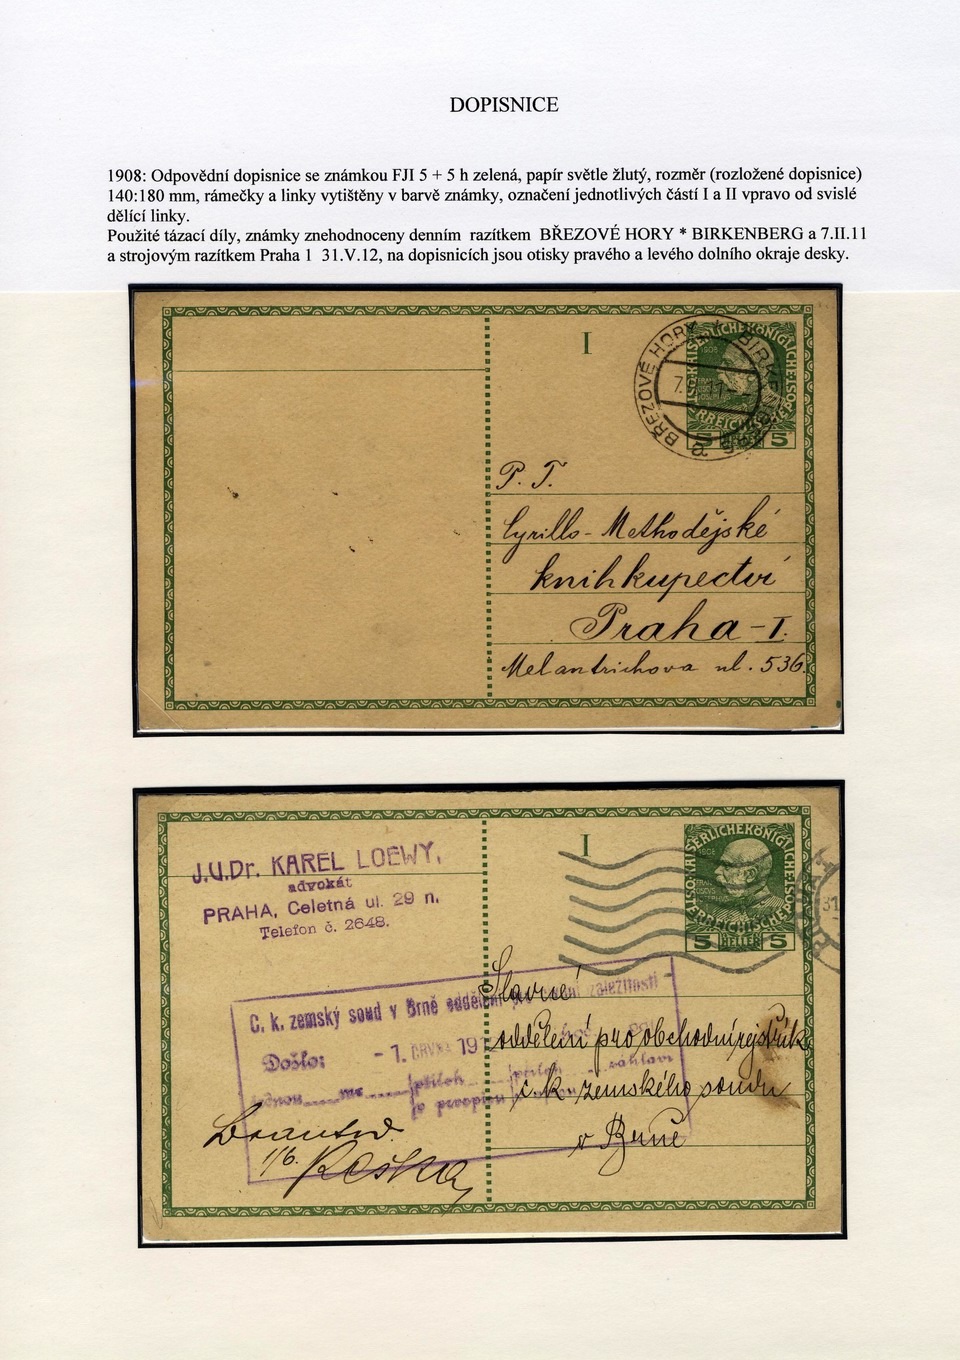 DOPISNICE
1908: Odpovědní dopisnice se známkou FJI 5 + 5 h zelená, papír světle žlutý, rozměr (rozložené dopisnice)
140:180 mm, rámečky a linky vytištěny v barvě známky, označení jednotlivých částí I a II vpravo od svislé
dělící linky.
Použité tázací díly, známky znehodnoceny denním razítkem BŘEZOVÉ HORY * BIRKENBERG a 7.II.11
a strojovým razítkem Praha 1 31.V.12, na dopisnicích jsou otisky pravého a levého dolního okraje desky.
I
BŘEZOVÉ HORY
KAISERLICHEKÖNIGLICHE
1908
5 5
P. T.
Cyrillo-Methodějské
knihkupectví
Praha-I.
Melantrichova ul. 536
J.U.Dr. KAREL LOEWY,
advokát
PRAHA, Celetná ul. 29 n.
Telefon č. 2648.
I
KAISERLICHEKÖNIGLICHE
1908
ÖSTERREICHISCHE
5 HELLER 5
31
C. k. zemský soud v Brně oddělení záležitosti
Došlo: -1. ČRVNA 191
Slavné
oddělení pro obchodní rejstřík
c. k. zemského soudu
v Brně
1/6.